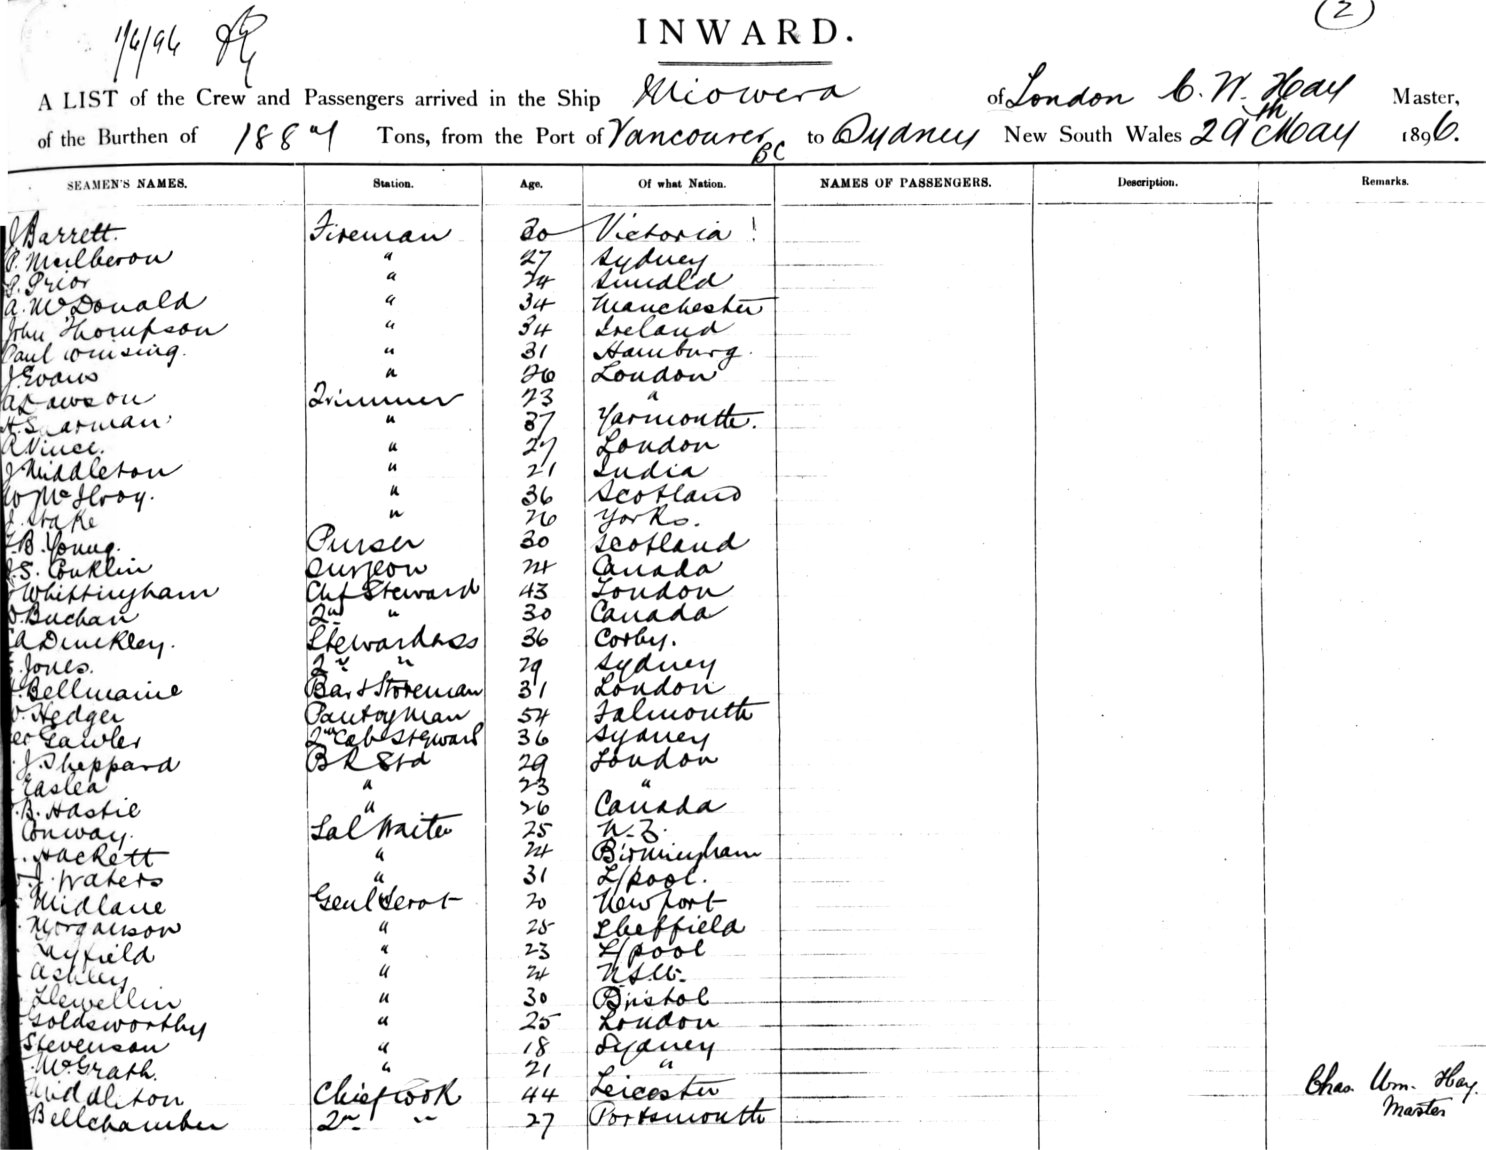 (2)
1/6/96
INWARD.
A LIST of the Crew and Passengers arrived in the Ship Miowera of London C. W. Hay Master,
of the Burthen of 1887 Tons, from the Port of Vancouver BC to Sydney New South Wales 29th May 1896.
SEAMEN'S NAMES. Station. Age. Of what Nation. NAMES OF PASSENGERS. Description. Remarks.
J Barrett. Fireman 30 Victoria !
P. " 27 Sydney
S. Prior " 24 Sundld
A. McDonald " 34 Manchester
John Thompson " 34 Ireland
Paul " 31 Hamburg.
J. Evans " 26 London
A Lawson Trimmer 23 "
H " 37 Yarmouth.
A Vince. " 27 London
J Middleton " 21 India
W McIlroy. " 36 Scotland
J. Stake " 26 Yorks.
B. Young. Purser 30 Scotland
J. S. Conklin Surgeon 24 Canada
Whittingham Chf Steward 43 London
Buchan 2nd " 30 Canada
A Dunkley. Stewardess 36 Corby.
Jones. 2nd " 29 Sydney
Bellmaine Bar & Storeman 31 London
Hedger Pantryman 54 Falmouth
Geo Gawler 2nd Cab Steward 36 Sydney
J. Sheppard B R Std 29 London
Easlea " 23 "
B. Hastie " 26 Canada
Conway. Sal Waiter 25 N. Z.
Hackett " 24 Birmingham
J. Waters " 31 L/pool.
Midlane Genl Servt 20 Newport
Morganson " 25 Sheffield
" 23 L/pool
Ashley " 24 N.S.W.
Llewellin " 30 Bristol
Goldsworthy " 25 London
Stevenson " 18 Sydney
McGrath. " 21 "
Middleton Chief Cook 44 Leicester
Bellchamber 2nd " 27 Portsmouth
Chas. Wm. Hay.
Master